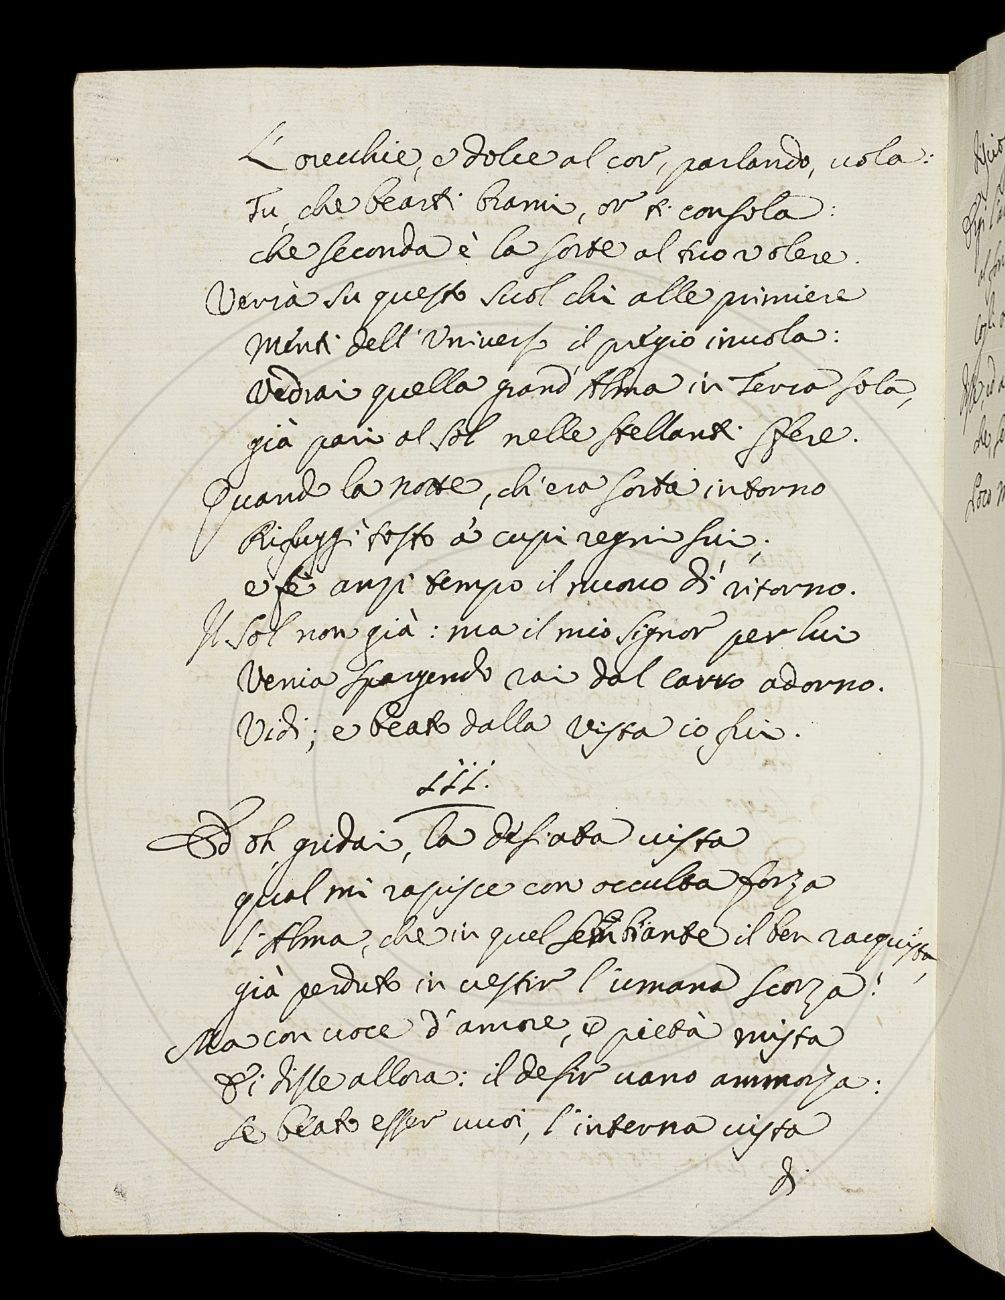 L'orecchie, e dolce al cor, parlando, vola:
Tu, che bearti brami, or ti consola:
che seconda è la sorte al tuo volere.
Verrà su questo suol chi alle primiere
Menti dell'Universo il pregio invola:
Vedrai quella grand'Alma in Terra sola,
già pari al Sol nelle stellanti sfere.
Quando la notte, ch'era sorta intorno
Rifuggì tosto a' cupi regni sui,
e fè anzi tempo il nuovo dì ritorno.
Il Sol non già: ma il mio Signor per lui
Venia spargendo rai dal carro adorno.
Vidi; e beato dalla vista io fui.
III.
Ed oh, gridai, la desiata vista
qual mi rapisce con occulta forza
l'Alma, che in quel sembiante il ben racquista,
già perduto in vestir l'umana scorza!
Ma con voce d'amore, e pietà mista
Ei disse allora: il desir vano ammorza:
Se beato esser vuoi, l'interna vista
di